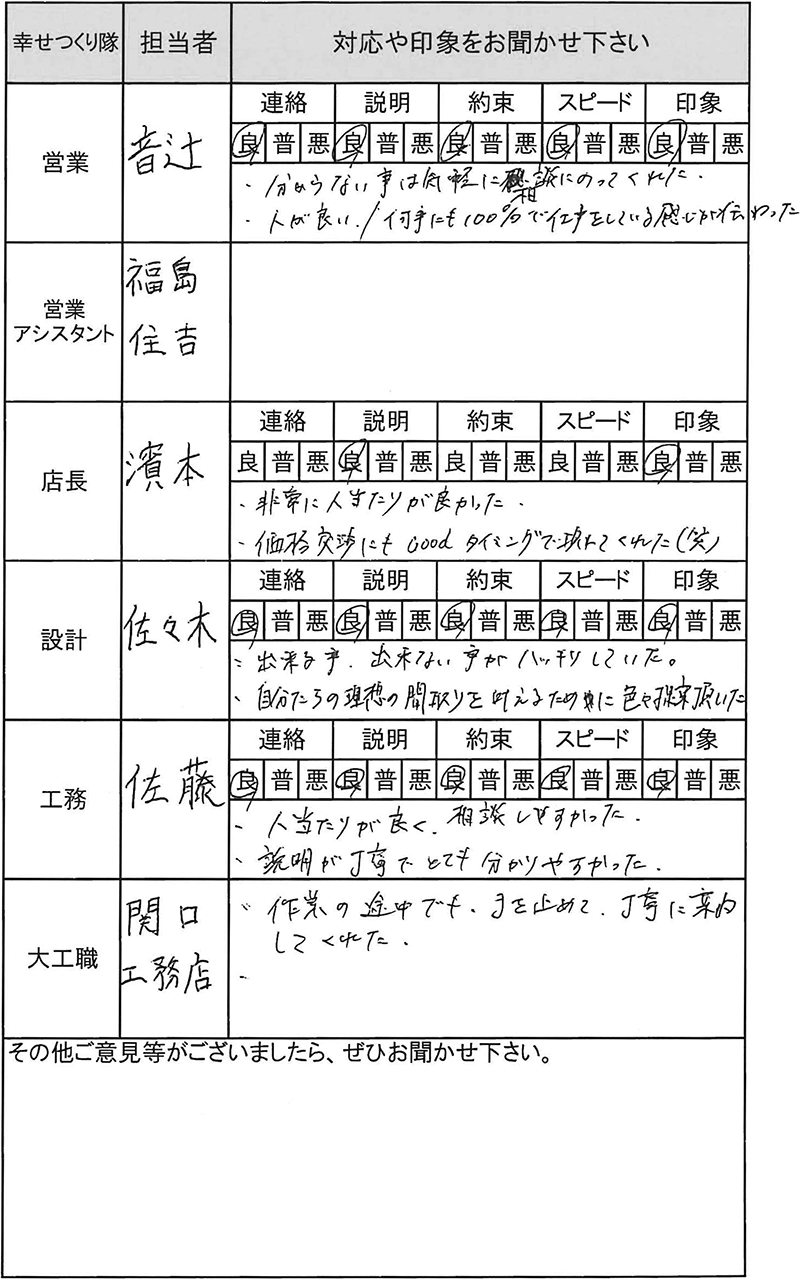 幸せつくり隊 担当者 対応や印象をお聞かせ下さい
営業 音辻
連絡 説明 約束 スピード 印象
良 普 悪 良 普 悪 良 普 悪 良 普 悪 良 普 悪
・分からない事は気軽に相談にのってくれた.
・人が良い./何事にも100%で仕事をしている感じが伝わった
営業
アシスタント
福島
住吉
店長 濱本
連絡 説明 約束 スピード 印象
良 普 悪 良 普 悪 良 普 悪 良 普 悪 良 普 悪
・非常に人当たりが良かった.
・価格交渉にもGoodタイミングで現れてくれた(笑)
設計 佐々木
連絡 説明 約束 スピード 印象
良 普 悪 良 普 悪 良 普 悪 良 普 悪 良 普 悪
・出来る事.出来ない事がハッキリしていた。
・自分たちの理想の間取りを叶えるために色々提案頂いた
工務 佐藤
連絡 説明 約束 スピード 印象
良 普 悪 良 普 悪 良 普 悪 良 普 悪 良 普 悪
・人当たりが良く.相談しやすかった.
・説明が丁寧でとても分かりやすかった.
大工職
関口
工務店
・作業の途中でも.手を止めて.丁寧に案内
してくれた.
その他ご意見等がございましたら、ぜひお聞かせ下さい。